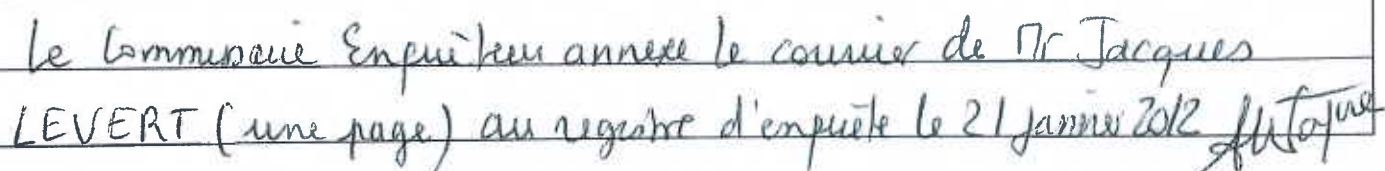 Le Commissaire Enquêteur annexe le courrier de Mr Jacques
LEVERT (une page) au registre d'enquête le 21 janvier 2012